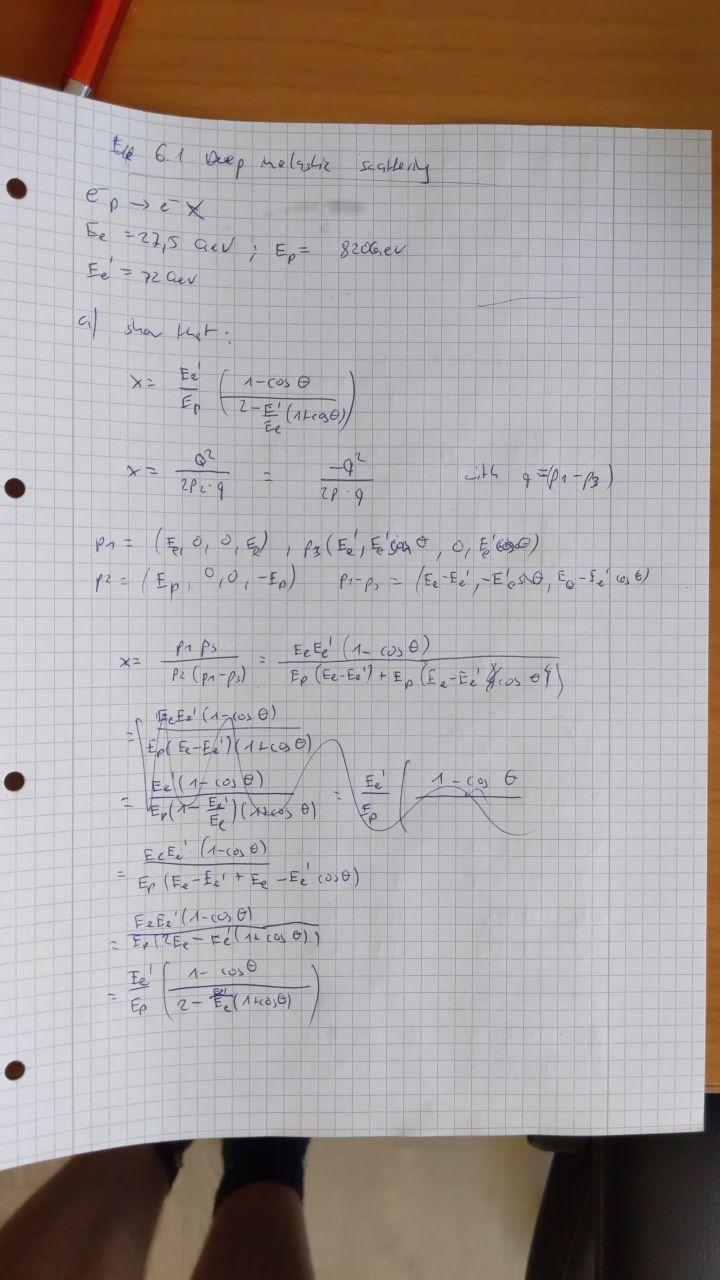 Ex 6.1 Deep inelastic scattering
e⁻p → e⁻ X
Ee = 27,5 GeV ; Ep = 820GeV
Ee' = 72 GeV
a) show that:
x = Ee'/Ep ( (1-cos θ) / (2 - E'/Ee (1+cosθ)) )
x = Q²/(2p2·q) = -q²/(2p·q) with q = (p1-p3)
p1 = (Ee, 0, 0, Ee) , p3 (Ee', Ee' sin θ, 0, Ee' cosθ)
p2 = (Ep, 0, 0, -Ep) p1-p3 = (Ee-Ee', -E'e sinθ, Ee - Ee' cosθ)
x = p1 p3 / (p2 (p1-p3)) = EeEe' (1-cosθ) / (Ep (Ee-Ee') + Ep (Ee-Ee' cos θ))
= EeEe' (1-cosθ) / (Ep (Ee-Ee')(1+cosθ))
= Ee' (1-cosθ) / (Ep (1 - Ee'/Ee)(1+cosθ)) = Ee'/Ep ( 1-cos θ
= EeEe' (1-cosθ) / (Ep (Ee-Ee' + Ee - Ee' cosθ))
= EeEe' (1-cosθ) / (Ep (2Ee - Ee' (1+cosθ)))
= Ee'/Ep ( (1- cosθ) / (2 - Ee'/Ee (1+cosθ)) )